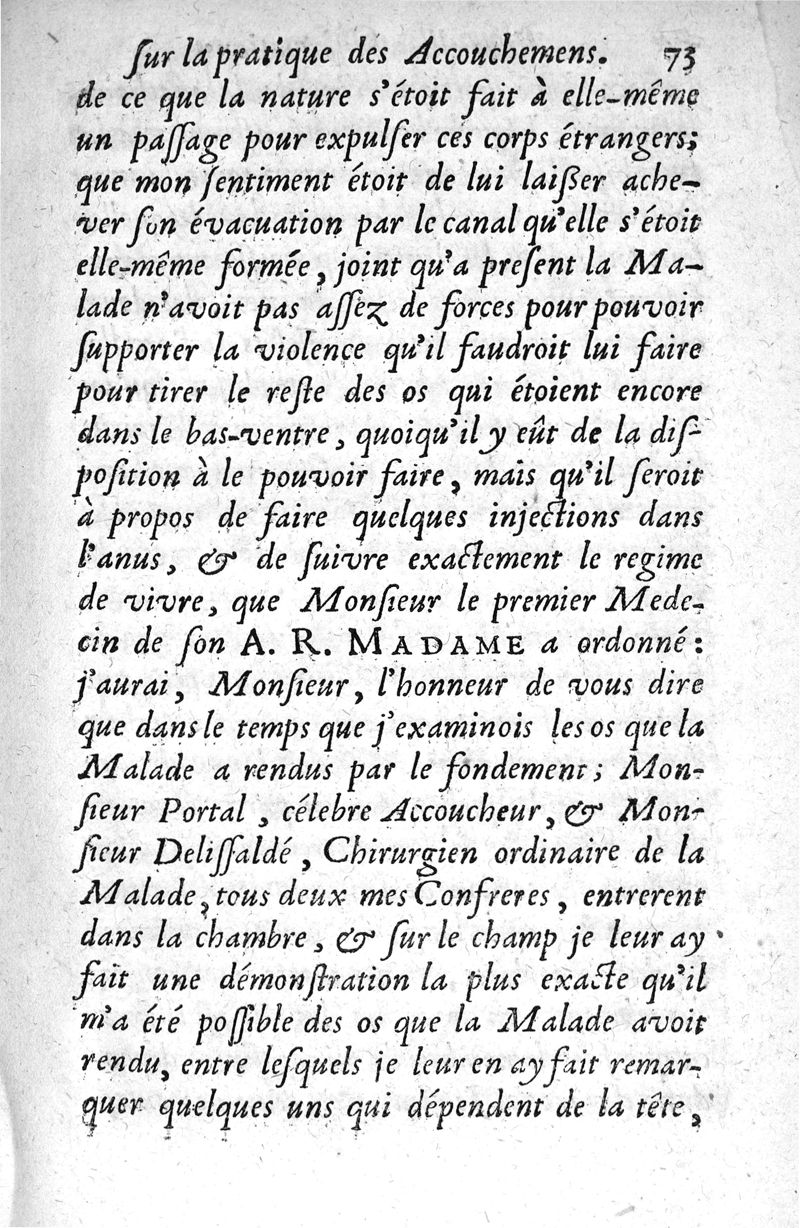 ſur la pratique des Accouchemens. 73
de ce que la nature s'étoit fait à elle-même
un paſſage pour expulſer ces corps étrangers;
que mon ſentiment étoit de lui laiſſer ache-
ver ſon évacuation par le canal qu'elle s'étoit
elle-même formée, joint qu'a preſent la Ma-
lade n'avoit pas aſſez de forces pour pouvoir
ſupporter la violence qu'il faudroit lui faire
pour tirer le reſte des os qui étoient encore
dans le bas-ventre, quoiqu'il y eût de la diſ-
poſition à le pouvoir faire, mais qu'il ſeroit
à propos de faire quelques injections dans
l'anus, & de ſuivre exactement le regime
de vivre, que Monſieur le premier Mede-
cin de ſon A. R. MADAME a ordonné:
j'aurai, Monſieur, l'honneur de vous dire
que dans le temps que j'examinois les os que la
Malade a rendus par le fondement; Mon-
ſieur Portal, célebre Accoucheur, & Mon-
ſieur Deliſſaldé, Chirurgien ordinaire de la
Malade, tous deux mes Confreres, entrerent
dans la chambre, & ſur le champ je leur ay
fait une démonſtration la plus exacte qu'il
m'a été poſſible des os que la Malade avoit
rendu, entre leſquels je leur en ay fait remar-
quer quelques uns qui dépendent de la tête,